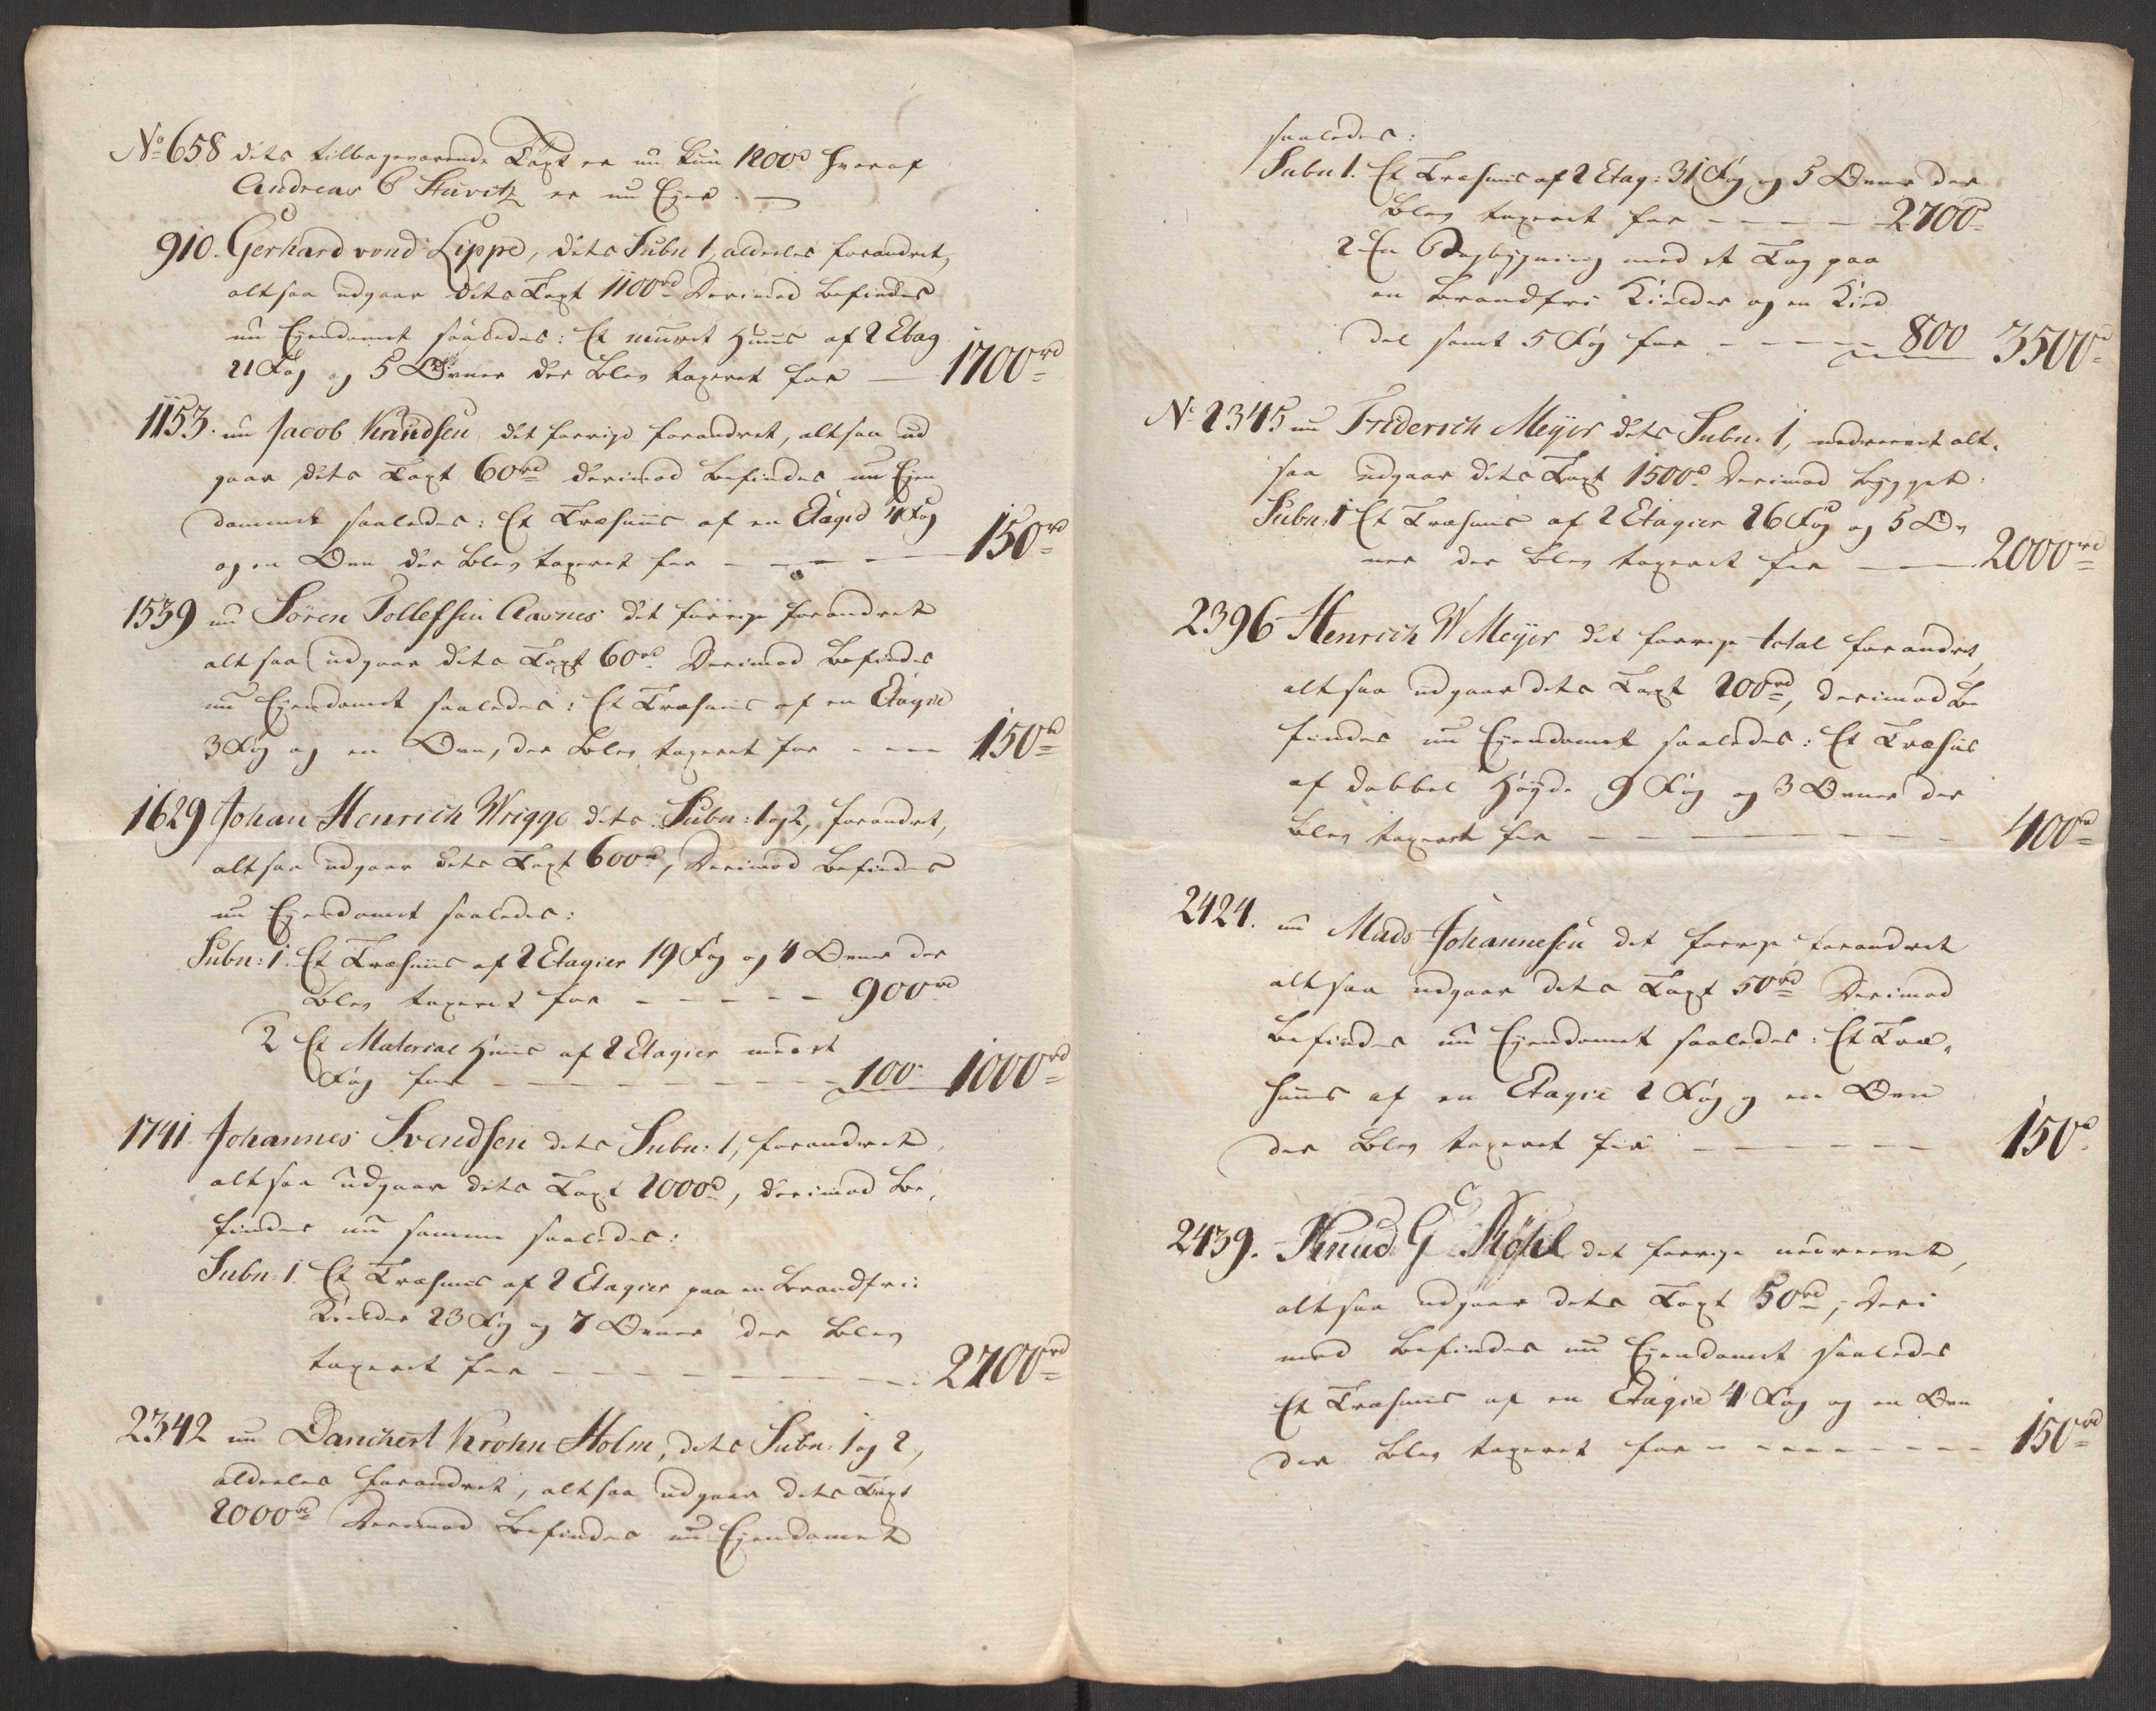 No 658 dets tilbageværende Taxt er nu kun 1200rd hvoraf
Andreas B Sturitz er nu Ejer. —
910. Gerhard vond Lippe, dets Subn 1, aldeles forandret,
altsaa udgaar dets Taxt 1100rd Derimod befindes
nu Ejendomet saaledes: Et muret Huus af 2 Etag
21 Fag og 5 Ovner der blev taxeret for — 1700rd
1153. nu Jacob Knudsen, det forrige forandret, altsaa ud
gaar dets Taxt 60rd derimod befindes nu Ejen
dommet saaledes: Et Træhuus af en Etagie 4 Fag
og en Ovn der blev taxeret for - - - - 150rd
1539 nu Sören Tollefsen Aavnes det forrige forandret
altsaa udgaar dets Taxt 60rd Derimod befindes
nu Ejendomet saaledes: Et Træhuus af en Etagie
3 Fag og en Ovn, der blev taxeret for - - - 150rd
1629 Johan Henrich Wrigge dets Subn: 1 og 2, forandret,
altsaa udgaar dets Taxt 600rd, Derimod befindes
nu Ejendomet saaledes:
Subn: 1. Et Træhuus af 2 Etagier 19 Fag og 4 Ovner der
blev taxeret for - - - - - 900rd
2 Et Material Huus af 2 Etagier med et
Fag for - - - - - - - - 100. 1000rd
1741. Johannes Svendsen dets Subn: 1, forandret,
altsaa udgaar dets Taxt 2000rd, derimod be,
findes nu samme saaledes:
Subn: 1. Et Træhuus af 2 Etagier paa en Brandfri:
Kielder 23 Fag og 7 Ovner der blev
taxeret for - - - - - - - - 2700rd
2342 nu Danckert Krohn Holm, dets Subn: 1 og 2,
aldeles forandret, altsaa udgaar dets Taxt
2000rd Derimod befindes nu Ejendomet
saaledes:
Subn 1. Et Træhuus af 2 Etag: 31 Fag og 5 Ovner der
blev taxeret for - - - - - 2700
2 En Bagbygning med et Fag paa
en brandfri Kielder og en Kied
del samt 5 Fag for - - - - 800 3500rd
No 2345 nu Friderich Meyer dets Subn: 1, nedrevet alt,
saa udgaar dets Taxt 1500rd Derimod bygget:
Subn: 1 Et Træhuus af 2 Etagier 26 Fag og 5 Ov
ner der blev taxeret for — — 2000rd
2396 Henrich W Meyer det forrige total forandret,
altsaa udgaar dets Taxt 200rd, derimod be
findes nu Ejendomet saaledes: Et Træhus
af dobbel Høyde 9 Fag og 3 Ovner der
blev taxeret for - - - - - - - - 400rd
2424. nu Mads Johannesen det forrige forandret
altsaa udgaar dets Taxt 50rd Derimod
befindes nu Ejendomet saaledes: Et Træ,
huus af en Etagie 2 Fag og en Ovn
der blev taxeret for - - - - - - 150rd
2439. Knud G Røhl det forrige nedrevet,
altsaa udgaar dets Taxt 50rd, Deri
mod befindes nu Ejendomet saaledes
Et Træhuus af en Etagie 4 Fag og en Ovn
der blev taxeret for - - - - - - - - 150rd